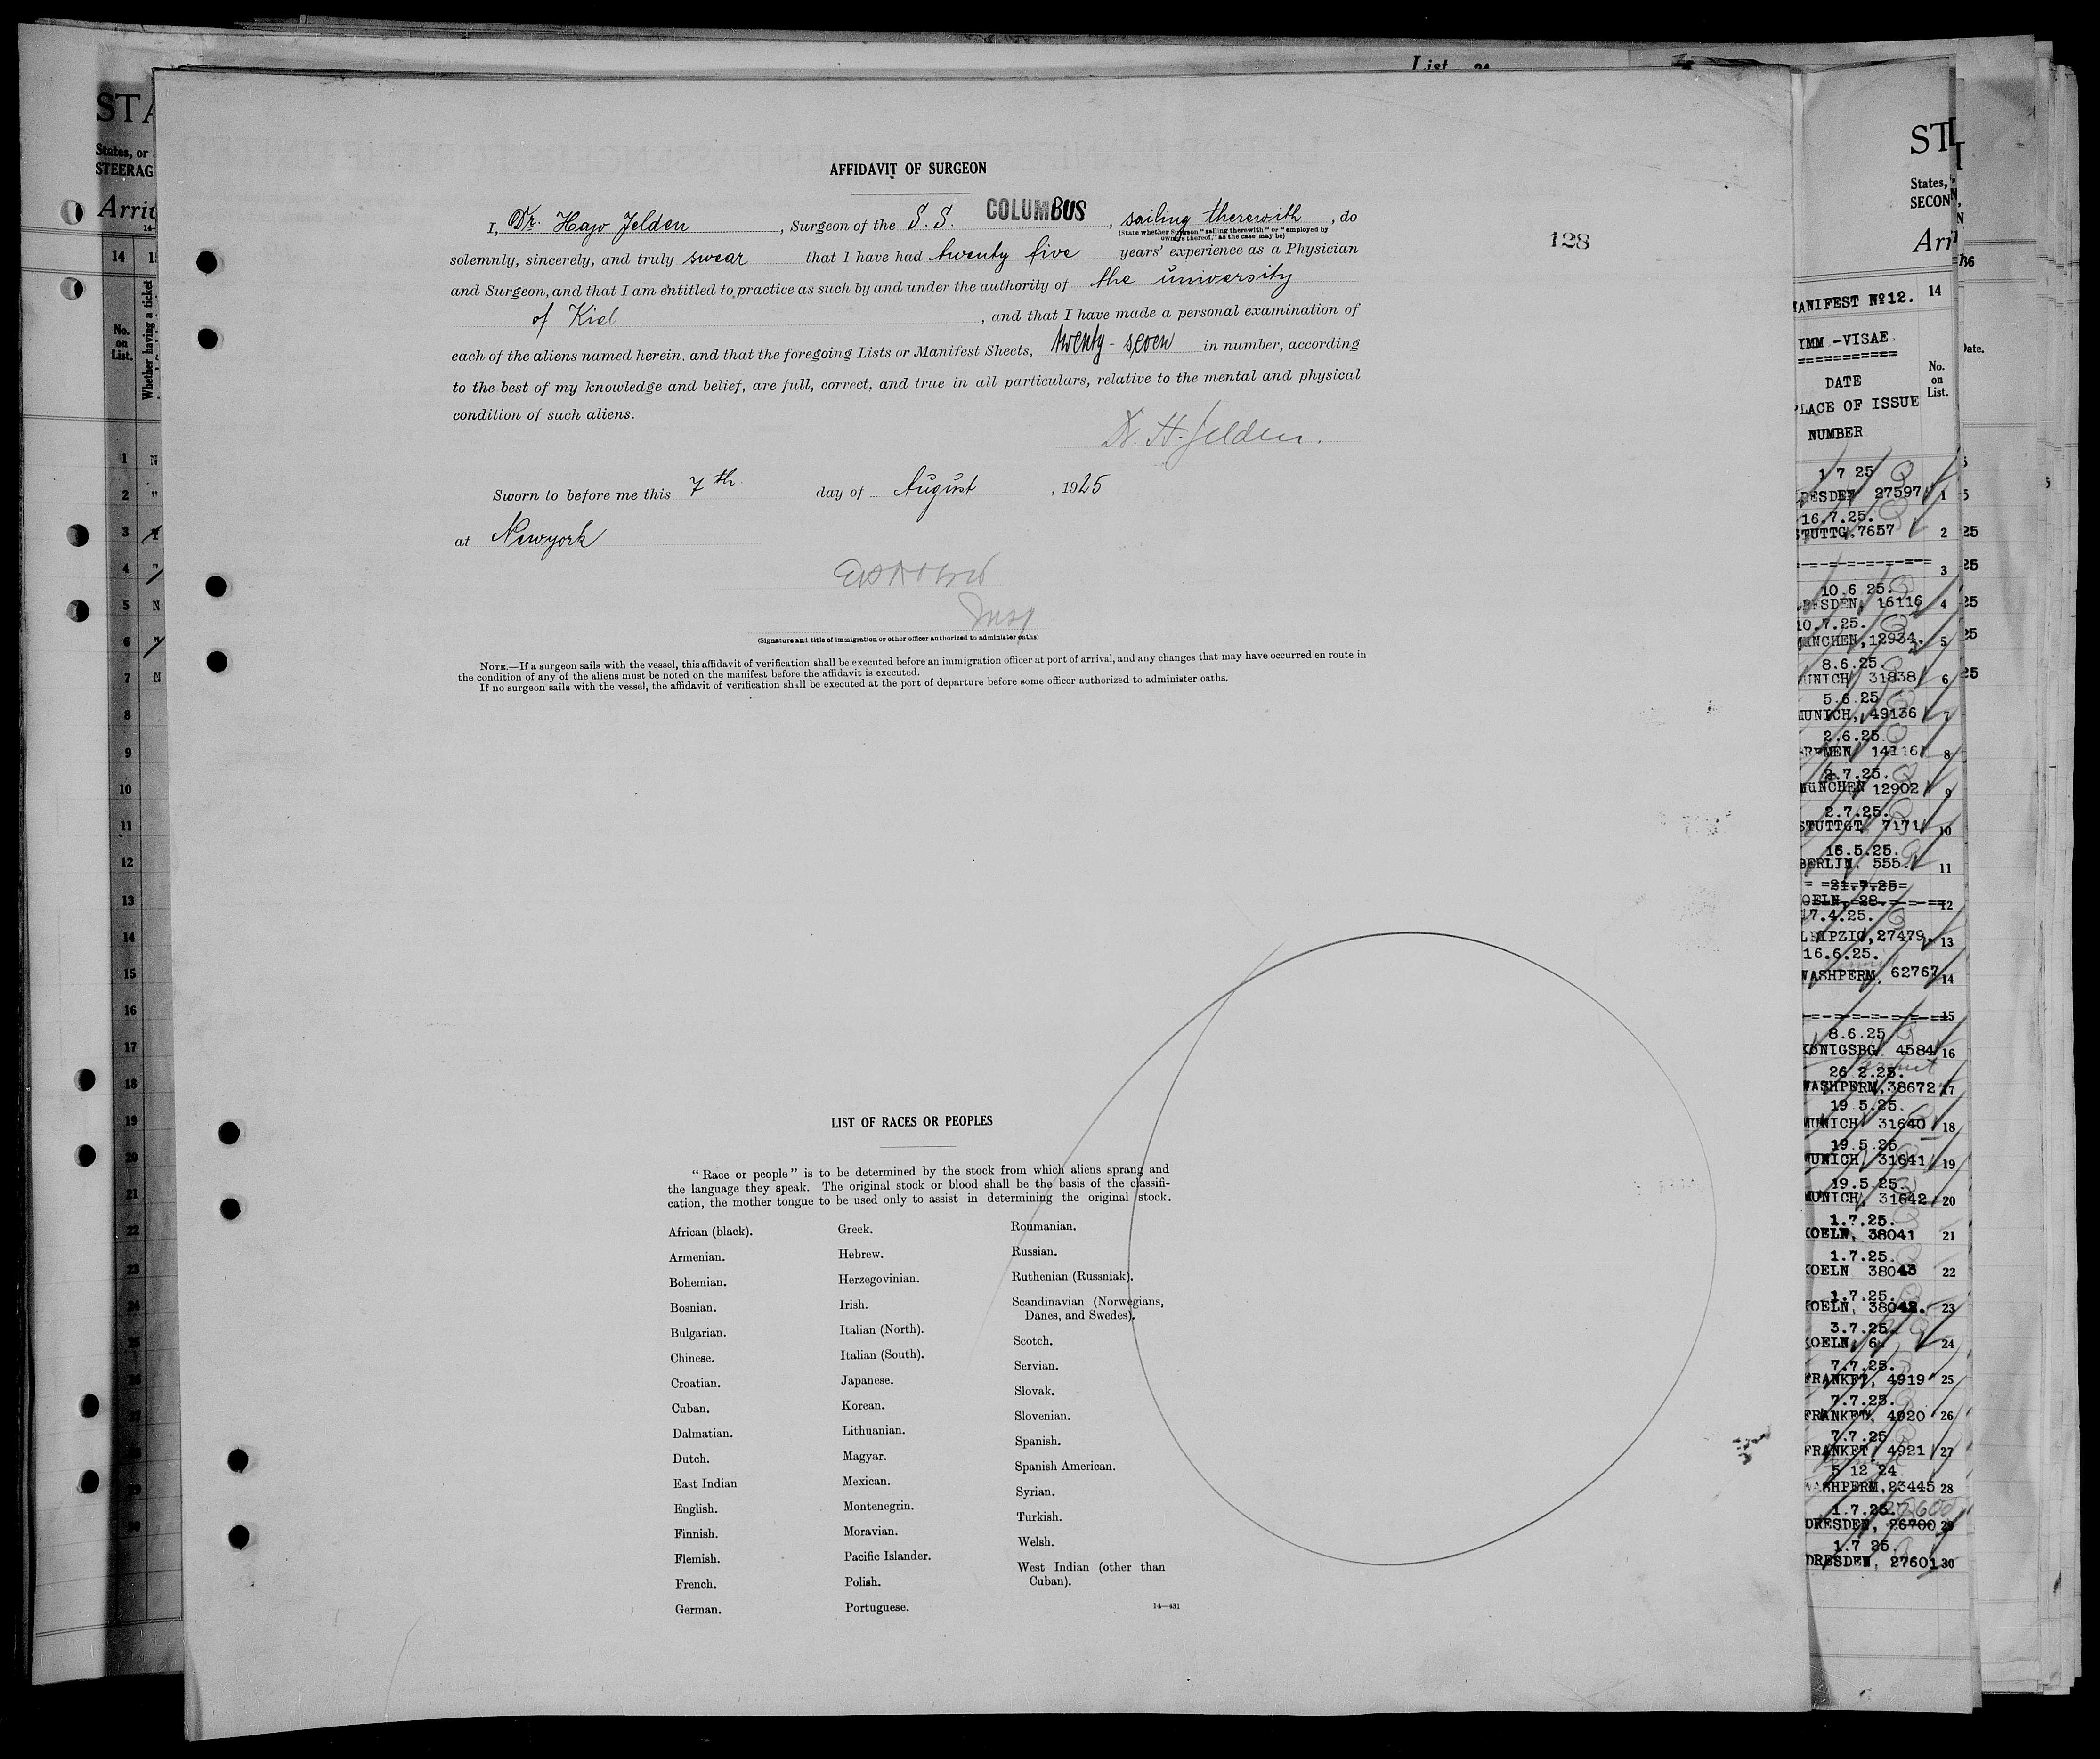 List
AFFIDAVIT OF SURGEON
I, Dr. Hajo Jelden , Surgeon of the S. S. COLUMBUS , sailing therewith , do
(State whether Surgeon "sailing therewith" or "employed by
owners thereof," as the case may be)
128
solemnly, sincerely, and truly swear that I have had twenty five years' experience as a Physician
and Surgeon, and that I am entitled to practice as such by and under the authority of the university
of Kiel , and that I have made a personal examination of
each of the aliens named herein, and that the foregoing Lists or Manifest Sheets, twenty-seven in number, according
to the best of my knowledge and belief, are full, correct, and true in all particulars, relative to the mental and physical
condition of such aliens.
Dr. H. Jelden.
Sworn to before me this 7th. day of August , 1925
at Newyork
Insp
(Signature and title of immigration or other officer authorized to administer oaths)
NOTE.—If a surgeon sails with the vessel, this affidavit of verification shall be executed before an immigration officer at port of arrival, and any changes that may have occurred en route in
the condition of any of the aliens must be noted on the manifest before the affidavit is executed.
If no surgeon sails with the vessel, the affidavit of verification shall be executed at the port of departure before some officer authorized to administer oaths.
LIST OF RACES OR PEOPLES
"Race or people" is to be determined by the stock from which aliens sprang and
the language they speak. The original stock or blood shall be the basis of the classifi-
cation, the mother tongue to be used only to assist in determining the original stock.
African (black).
Armenian.
Bohemian.
Bosnian.
Bulgarian.
Chinese.
Croatian.
Cuban.
Dalmatian.
Dutch.
East Indian
English.
Finnish.
Flemish.
French.
German.
Greek.
Hebrew.
Herzegovinian.
Irish.
Italian (North).
Italian (South).
Japanese.
Korean.
Lithuanian.
Magyar.
Mexican.
Montenegrin.
Moravian.
Pacific Islander.
Polish.
Portuguese.
Roumanian.
Russian.
Ruthenian (Russniak).
Scandinavian (Norwegians,
Danes, and Swedes).
Scotch.
Servian.
Slovak.
Slovenian.
Spanish.
Spanish American.
Syrian.
Turkish.
Welsh.
West Indian (other than
Cuban).
14—431
States, or
14
No.
on
List.
Whether having a ticket
1 N
2 "
3
4 "
5 N
6 "
7 N
8
9
10
11
12
13
14
15
16
17
18
19
20
21
22
23
24
25
26
27
28
29
30
States,
MANIFEST Nº12. 14
IMM -VISAE
===========
DATE
PLACE OF ISSUE
NUMBER
No.
on
List.
Date.
1 7 25
DRESDEN 27597 1
16.7.25.
STUTTG.7657 2
3
10.6 25.
DRESDEN, 16116 4
10.7.25.
MÜNCHEN,12934. 5
8.6.25.
MUNICH 31838 6
5.6.25
MUNICH, 49136 7
2.6.25.
BREMEN 14116 8
2.7.25.
MÜNCHEN 12902 9
2.7.25.
STUTTGT 7171 10
16.5.25.
BERLIN. 555. 11
21.7.25
KOELN, 28. 12
17.4.25.
LEIPZIG,27479 13
16.6.25.
WASHPERM. 62767 14
15
8.6.25
KÖNIGSBG 4584 16
26 2.25.
WASHPERM.38672 17
19 5.25.
MUNICH 31640 18
19.5.25
MUNICH 31641 19
19.5.25.
MUNICH, 31642 20
1.7.25.
KOELN, 38041 21
1.7.25.
KOELN 38043 22
1.7.25.
KOELN, 38042. 23
3.7.25.
KOELN, 6. 24
7.7.25.
FRANKFT, 4919 25
7.7.25.
FRANKFT, 4920 26
7.7.25
FRANKFT, 4921 27
5 12 24
WASHPERM,23445 28
1.7.25.
DRESDEN, 26700 29
1.7 25.
DRESDEN, 27601 30